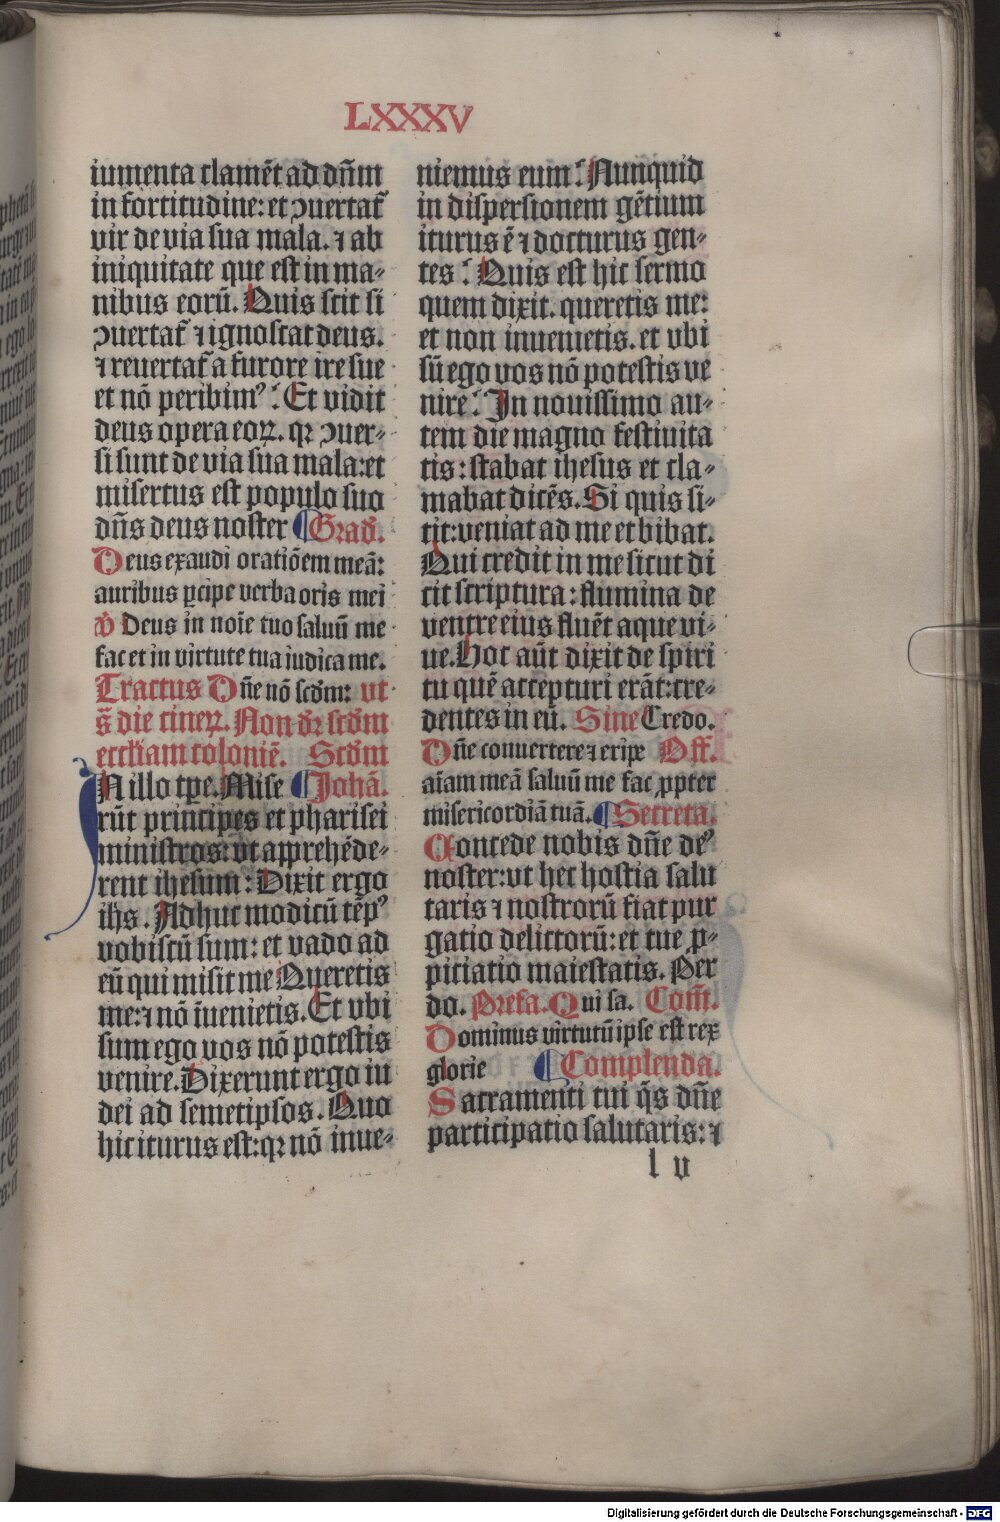 LXXXV
iumenta clamēt ad dn̄m
in fortitudine: et ꝯuertat᷑
vir de via sua mala. ⁊ ab
iniquitate que est in ma-
nibus eorū. Quis scit si
ꝯuertat᷑ ⁊ ignoscat deus.
⁊ reuertat᷑ a furore ire sue
et nō peribimꝰ? Et vidit
deus opera eoꝝ. qꝛ ꝯuer-
si sunt de via sua mala: et
misertus est populo suo
dn̄s deus noster Grad̄.
Deus exaudi oratiōem meā:
auribus ꝑcipe verba oris mei
℣ Deus in noīe tuo saluū me
fac et in virtute tua iudica me.
Tractus Dn̄e nō scd̄m: vt
s̄ die cineꝝ. Non dꝛ scd̄m
eccl̄iam coloniē. Scd̄m
IN illo tꝑe. Mise Johā.
rūt principes et pharisei
ministros: vt apprehēde-
rent ihesum: Dixit ergo
ih̄s. Adhuc modicū tēpꝰ
vobiscū sum: et vado ad
eū qui misit me Queretis
me: ⁊ nō īuenietis. Et vbi
sum ego vos nō potestis
venire. Dixerunt ergo iu
dei ad semetipsos. Quo
hic iturus est: qꝛ nō inue-
niemus eum? Nunquid
in dispersionem gētium
iturus ē ⁊ docturus gen-
tes? Quis est hic sermo
quem dixit. queretis me:
et non inuenietis. et vbi
sū ego vos nō potestis ve
nire? In nouissimo au-
tem die magno festiuita
tis: stabat ihesus et cla-
mabat dicēs. Si quis si-
tit: veniat ad me et bibat.
Qui credit in me sicut di
cit scriptura: flumina de
ventre eius fluēt aque vi-
ue. Hoc aūt dixit de spiri
tu quē accepturi erāt: cre-
dentes in eū. Sine Credo.
Dn̄e conuertere ⁊ eripe Off.
aīam meā saluū me fac ꝓpter
misericordiā tuā. Secreta.
Concede nobis dn̄e deꝰ
noster: vt hec hostia salu
taris ⁊ nostrorū fiat pur
gatio delictorū: et tue ꝓ-
pitiatio maiestatis. Per
do. Prefa. Qui sa. Com̄.
Dominus virtutū ipse est rex
glorie Complenda.
Sacramenti tui q̄s dn̄e
participatio salutaris: ⁊
l v
Digitalisierung gefördert durch die Deutsche Forschungsgemeinschaft - DFG